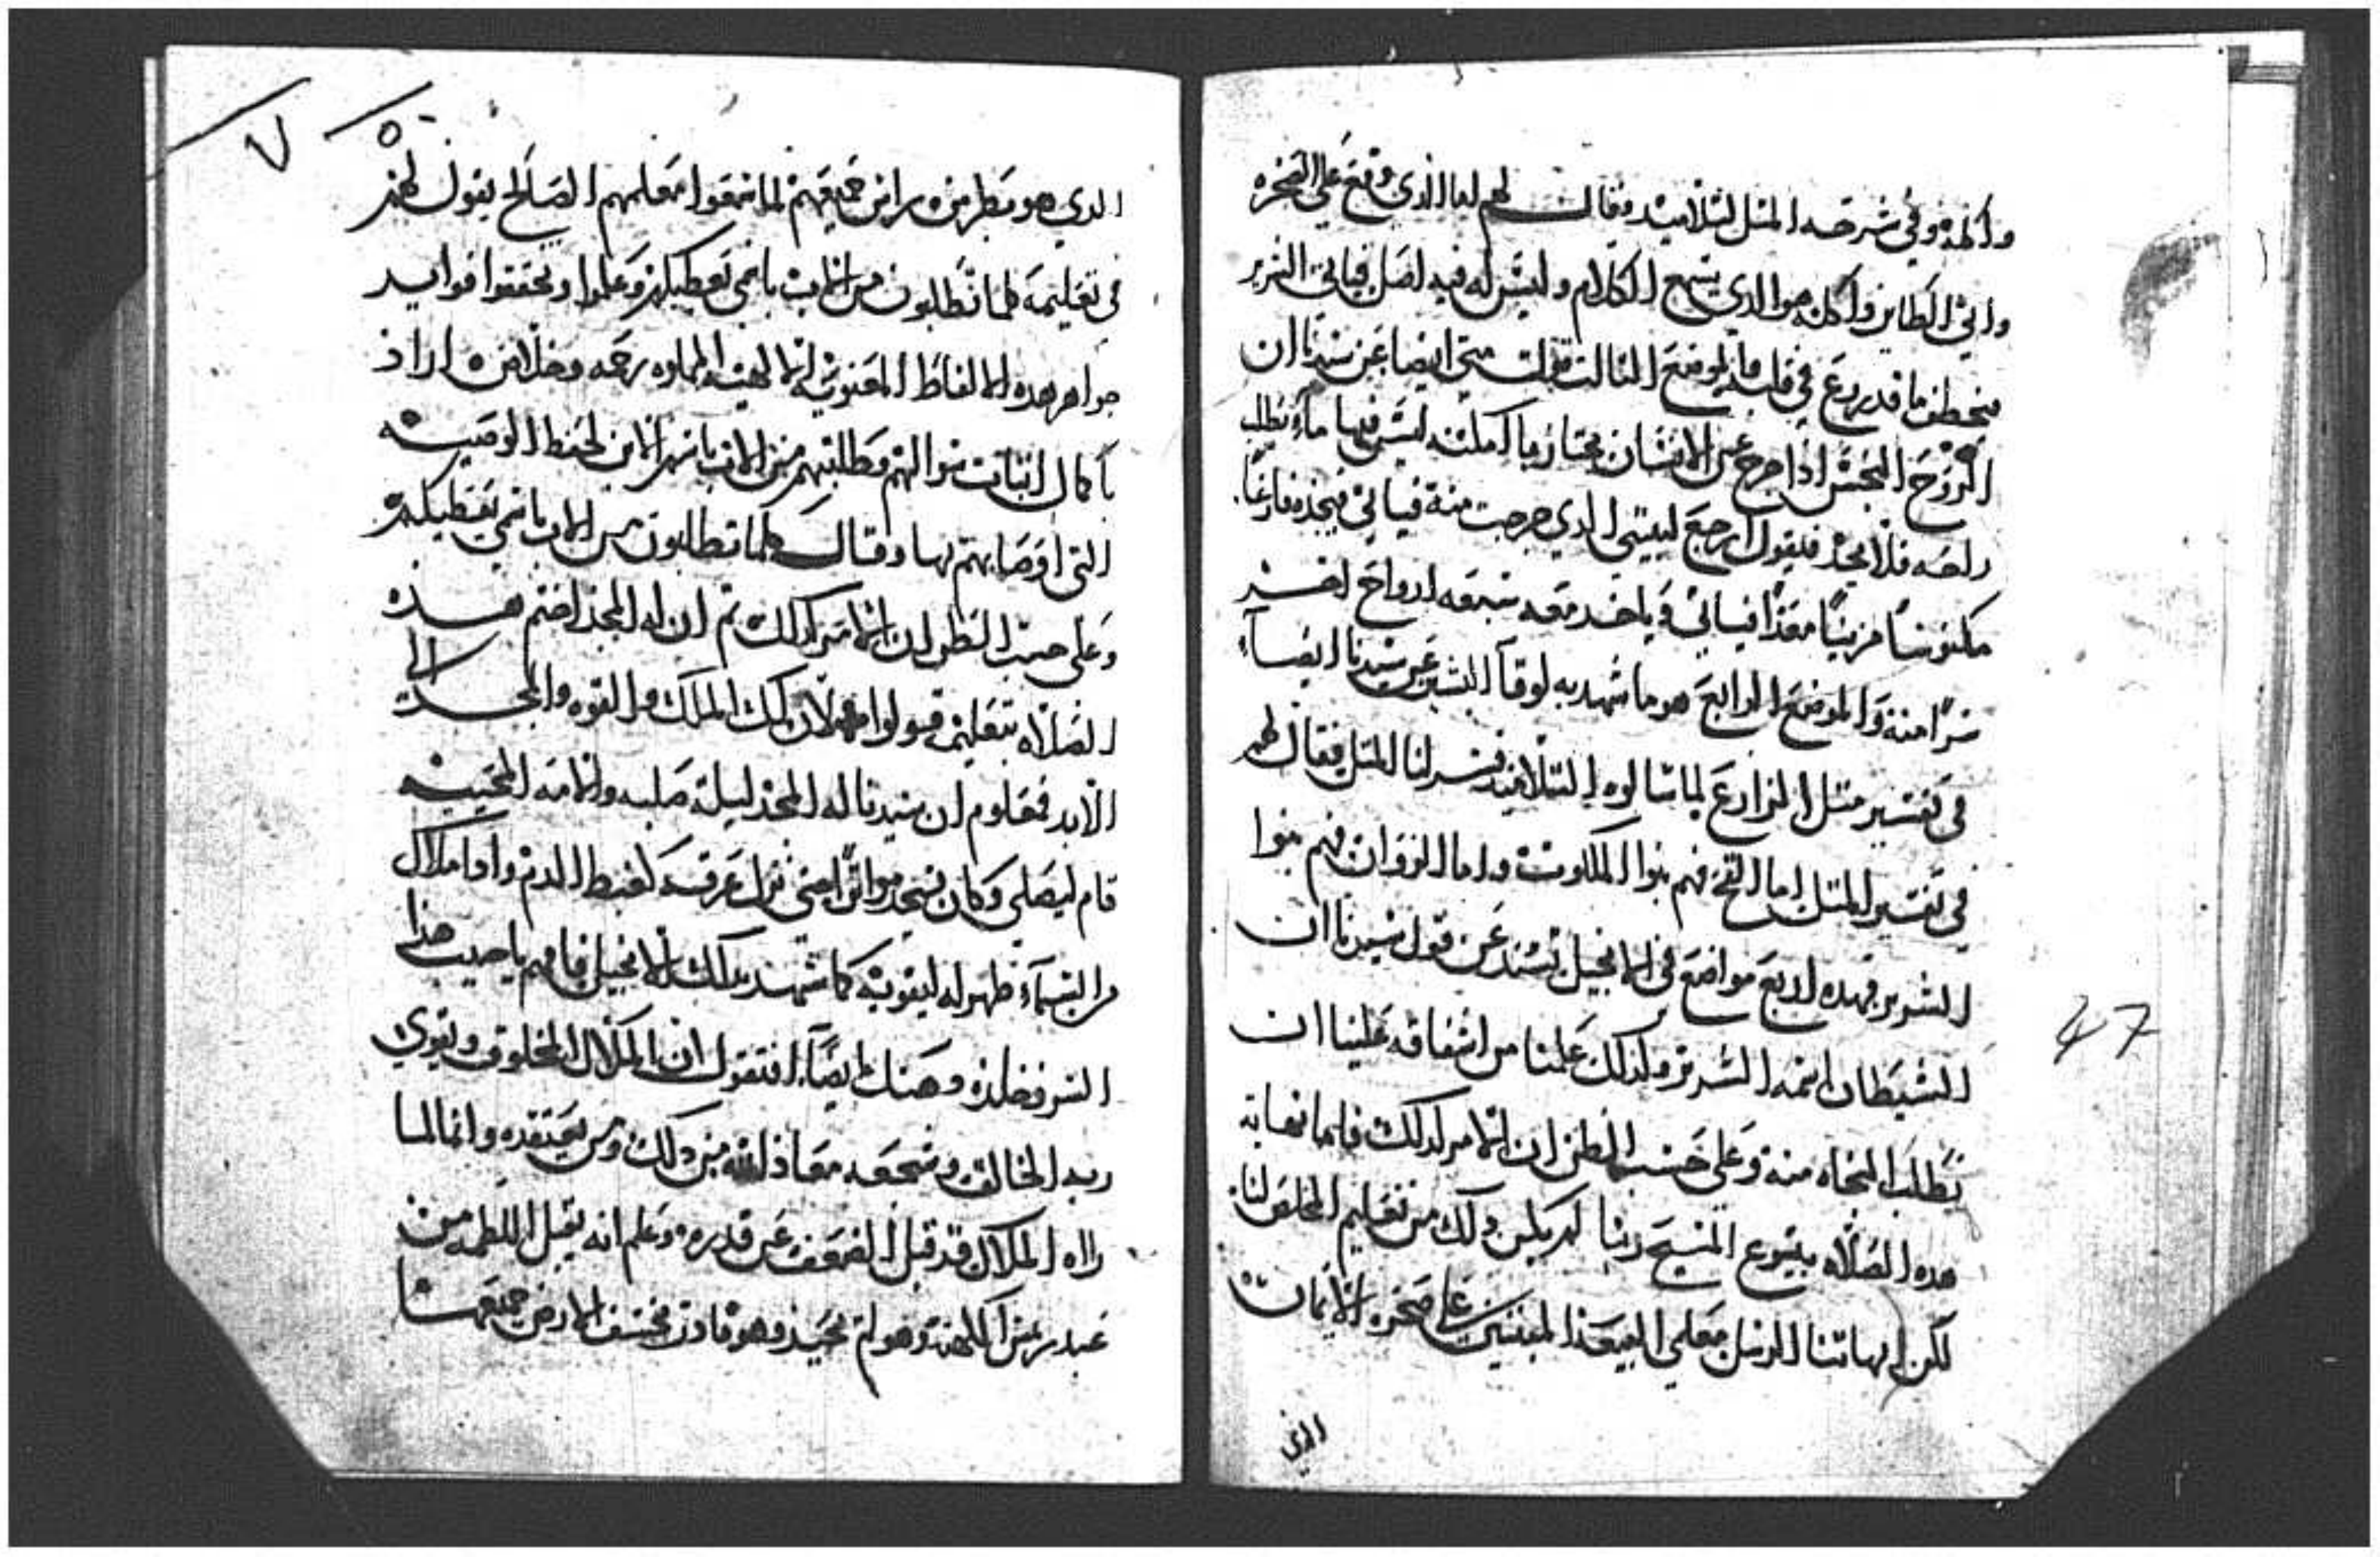 واكله وفي شرحه المثل لتلاميده وقال لهم اما الذي وقع علي الصخره
واتي الطاير واكله هو الدي يسمع الكلام وليس له فيه اصل فياتي الشرير
فيخطف ما قد زرع في قلبه والموضع التالت قول متي ايضا عن سيدنا ان
الروح النجس ادا خرج من الانسان يجتاز باماكن ليس فيها ماء يطلب
راحه فلا يجد فيقول ارجع لبيتي الدي خرجت منه فياتي فيجده فارغا
مكنوسا مزينا معدا فياتي وياخد معه سبعه ارواح اخر
شرا منه والموضع الرابع هو ما شهد به لوقا البشير عن سيدنا ايضا
في تفسير مثل الزارع لما سالوه التلاميد فسر لنا المثل فقال لهم
في تفسير المثل اما القمح فهم بنوا الملكوت واما الزوان فهم بنوا
الشرير فهده اربع مواضع في الانجيل تسند عن قول سيدنا ان
الشيطان اسمه الشرير ولدلك علمنا من اشفاقه علينا ان
نطلب النجاه منه وعلي حسب الظن ان الامر كدلك فانما نهاية
هده الصلاه بيسوع المسيح ربنا لم يكن دلك من تعليم المخلص لنا
لكن ابهاتنا الرسل معلمي البيعه المبنيين علي صخره الايمان
الدي
47
٧
الدي هو بطرس راس جميعهم لما سمعوا معلمهم الصالح يقول لهم
في تعليمه كلما تطلبون من الاب باسمي يعطيكم وعلموا وتحققوا فوايد
جواهر هده الالفاظ المعنويه الالهيه المملوه رحمه وخلاص ارادوا
باكمال اتبات سوالهم وطلبتهم من الاب باسم الابن لحفظ الوصيه
التي اوصاهم بها وقال كلما تطلبون من الاب باسمي يعطيكم
وعلي حسب الظن ان الامر كدلك تم ان له المجد اختم هده
الصلاه بتعليمه قولوا لان لك الملك والقوه والمجد الي
الابد فمعلوم ان سيدنا له المجد ليلة صلبه والامه المحييه
قام ليصلي وكان يسجد مواترا حتي نزل عرقه كعبيط الدم وادا ملاك
من السماء ظهر له ليقويه كما شهد بدلك الانجيل فافهم يا حبيب هذا
السر وهناك ايضا افتقول ان الملاك المخلوق يقوي
ربه الخالق ويشجعه معاذ الله من دلك ومن يعتقده وانما لما
رااه الملاك قد قبل الضعف عن قدره وعلم انه يقبل اللطمه من
عبد ريس الكهنه وهو لم يحيد وهو قادر يخسف الارض جميعها